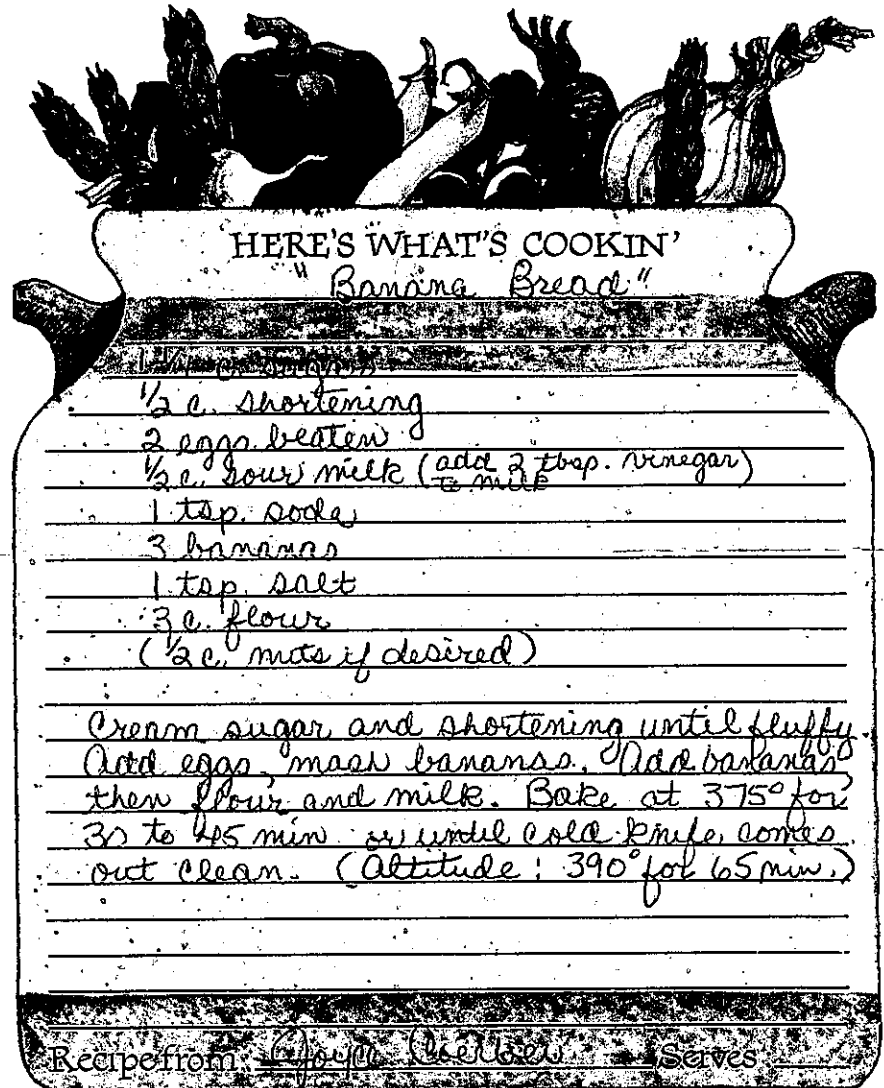 HERE'S WHAT'S COOKIN'
"Banana Bread"
1 1/4 c. sugar
1/2 c. shortening
2 eggs beaten
1/2 c. sour milk (add 2 tbsp. vinegar
to milk)
1 tsp. soda
3 bananas
1 tsp. salt
3 c. flour
(1/2 c. nuts if desired)
Cream sugar and shortening until fluffy.
Add eggs, mash bananas. Add bananas,
then flour and milk. Bake at 375° for
30 to 45 min or until cold knife comes
out clean. (Altitude: 390° for 65 min.)
Recipe from Joyce Serves